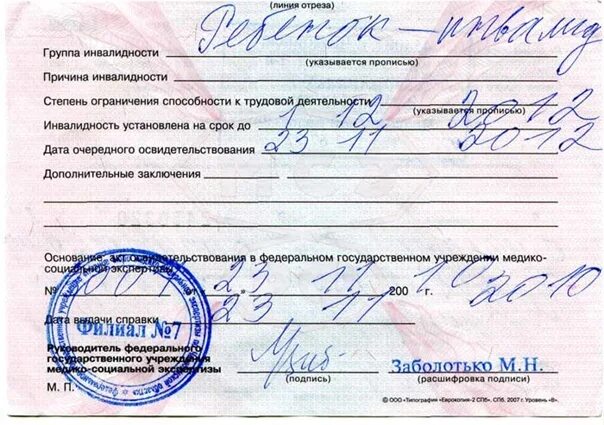 (линия отреза)
Ребенок - инвалид
Группа инвалидности
(указывается прописью)
Причина инвалидности
Степень ограничения способности к трудовой деятельности
(указывается прописью)
Инвалидность установлена на срок до 1 12 2012
Дата очередного освидетельствования 23 11 2012
Дополнительные заключения
Основание: акт освидетельствования в федеральном государственном учреждении медико-
социальной экспертизы
№ от 23 11 200 г. 2010
Дата выдачи справки 23 11
Филиал №7
Руководитель федерального
государственного учреждения
медико-социальной экспертизы
Заболотько М.Н.
М. П.
(подпись)
(расшифровка подписи)
© ООО «Типография «Еврокопия-2 СПб», СПб, 2007 г. Уровень «В».